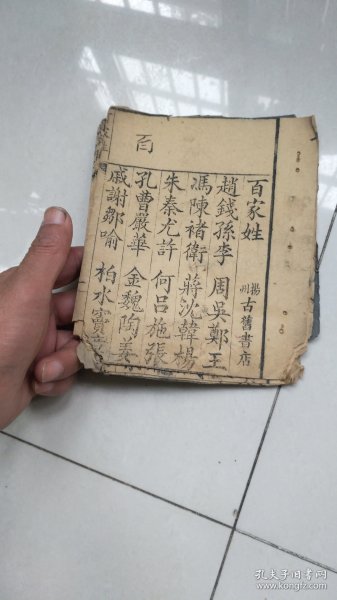 百
百家姓
揚州古舊書店
趙錢孫李 周吳鄭王
馮陳褚衛 蔣沈韓楊
朱秦尤許 何呂施張
孔曹嚴華 金魏陶姜
戚謝鄒喻 柏水竇章
孔夫子旧书网
kongfz.com